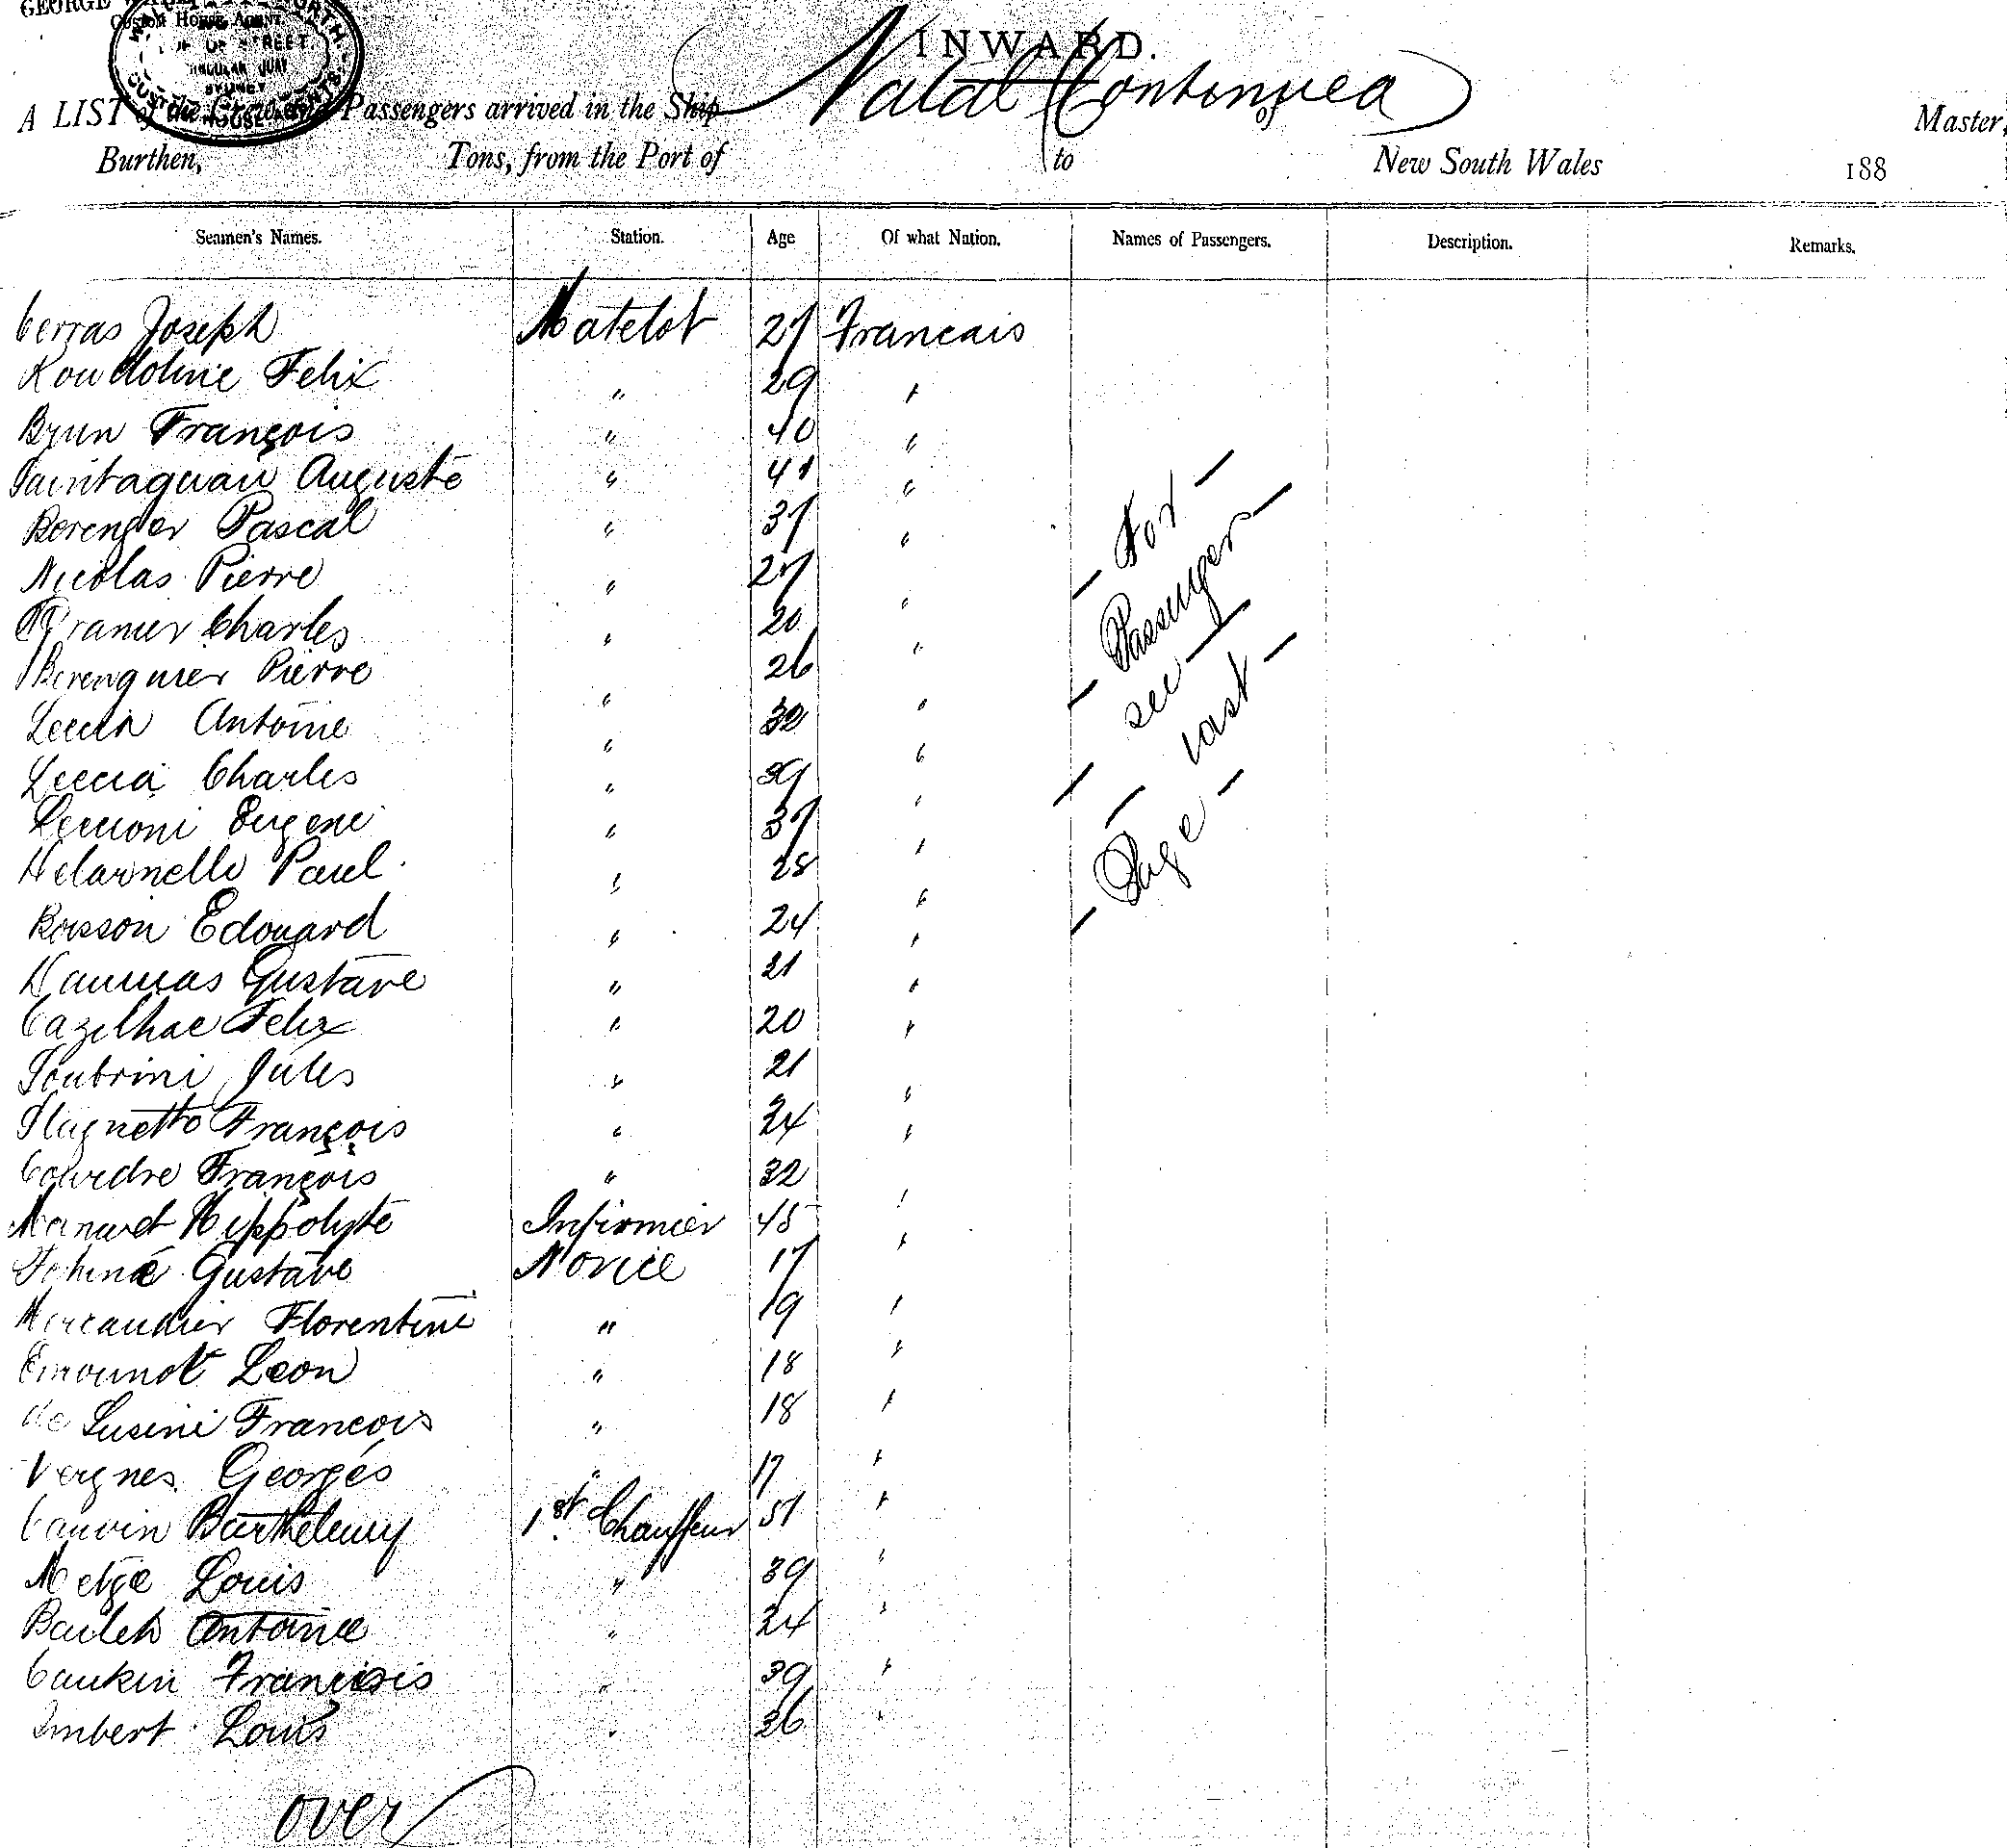 GEORGE
Custom House Agent
STREET
CIRCULAR QUAY
SYDNEY
CUSTOM HOUSE AGENTS
INWARD.
A LIST of the Crew and Passengers arrived in the Ship Natal (Continued) of Master,
Burthen, Tons, from the Port of to New South Wales 188
Seamen's Names. Station. Age Of what Nation. Names of Passengers. Description. Remarks.
Cerras Joseph Matelot 27 Francais
Felix " 29 "
Brun François " 40 "
Auguste " 41 "
Berenger Pascal " 37 "
Nicolas Pierre " 27 "
Charles " 20 "
Berenguier Pierre " 26 "
Leccia Antoine " 32 "
Leccia Charles " 39 "
Eugene " 37 "
Paul " 28 "
Boisson Edouard " 24 "
Daumas Gustave " 21 "
Cazilhac Felix " 20 "
Soubrini Jules " 21 "
François " 24 "
François " 32 "
Hippolyte Infirmier 45 "
Gustave Novice 17 "
Florentine " 19 "
Leon " 18 "
de Susini Francois " 18 "
Vergnes Georges " 17 "
Cauvin Barthelemy 1st Chauffeur 51 "
Metge Louis " 39 "
Antoine " 24 "
François " 39 "
Imbert Louis " 36 "
- For -
- Passengers -
- see -
- last -
- Page -
over